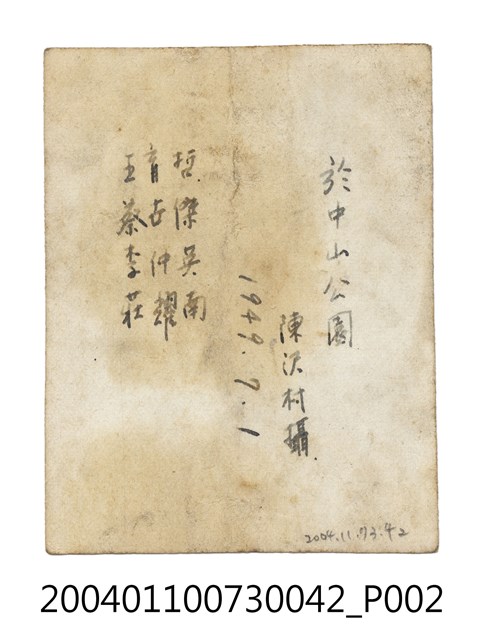 於中山公園
陳沢村攝
1949.7.1
王育哲
蔡世傑
李仲吳
莊耀南
2004.11.73.42
200401100730042_P002